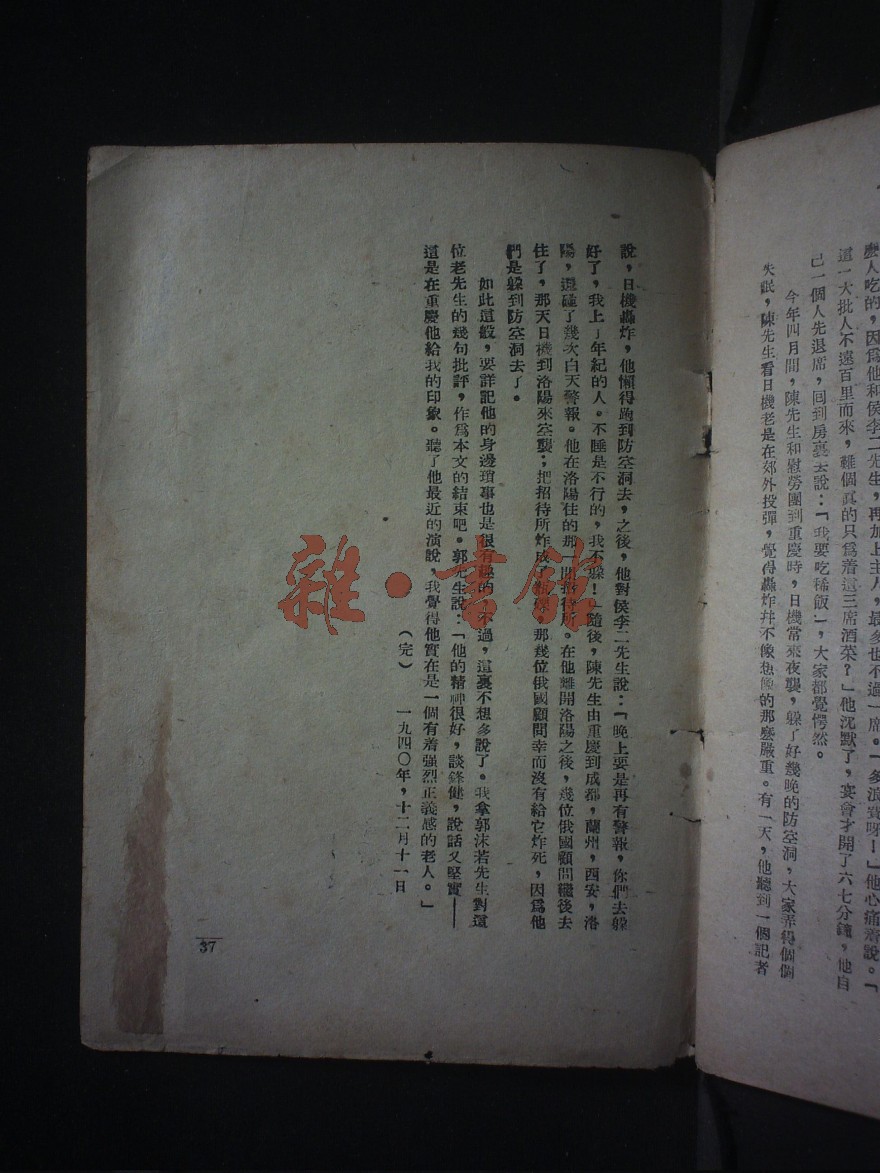 麽人吃的，因爲他和侯李二先生，再加上主人，最多也不過一席。「多浪費呀！」他心痛着說。「
這一大批人不遠百里而來，難個眞的只爲着這三席酒菜？」他沉默了，宴會才開了六七分鐘，他自
己一個人先退席，回到房裏去說：「我要吃稀飯」，大家都覺愕然。
今年四月間，陳先生和慰勞團到重慶時，日機常來夜襲，躱了好幾晚的防空洞，大家弄得個個
失眠，陳先生看日機老是在郊外投彈，覺得轟炸幷不像想像的那麽嚴重。有一天，他聽到一個記者
說，日機轟炸，他懶得跑到防空洞去，之後，他對侯李二先生說：「晚上要是再有警報，你們去躱
好了，我上了年紀的人。不睡是不行的，我不躱！隨後，陳先生由重慶到成都，蘭州，西安，洛
陽，還碰了幾次白天警報。他在洛陽住的那一間招待所。在他離開洛陽之後，幾位俄國顧問繼後去
住了，那天日機到洛陽來空襲；把招待所炸成了，那幾位俄國顧問幸而沒有給它炸死，因爲他
們是躱到防空洞去了。
如此這般，要詳記他的身邊瑣事也是很有趣的不過，這裏不想多說了。我拿郭沫若先生對這
位老先生的幾句批評，作爲本文的結束吧。郭先生說：「他的精神很好，談鋒健，說話又堅實——
這是在重慶他給我的印象。聽了他最近的演說，我覺得他實在是一個有着强烈正義感的老人。」
（完） 一九四〇年，十二月十一日
37
雜·書館